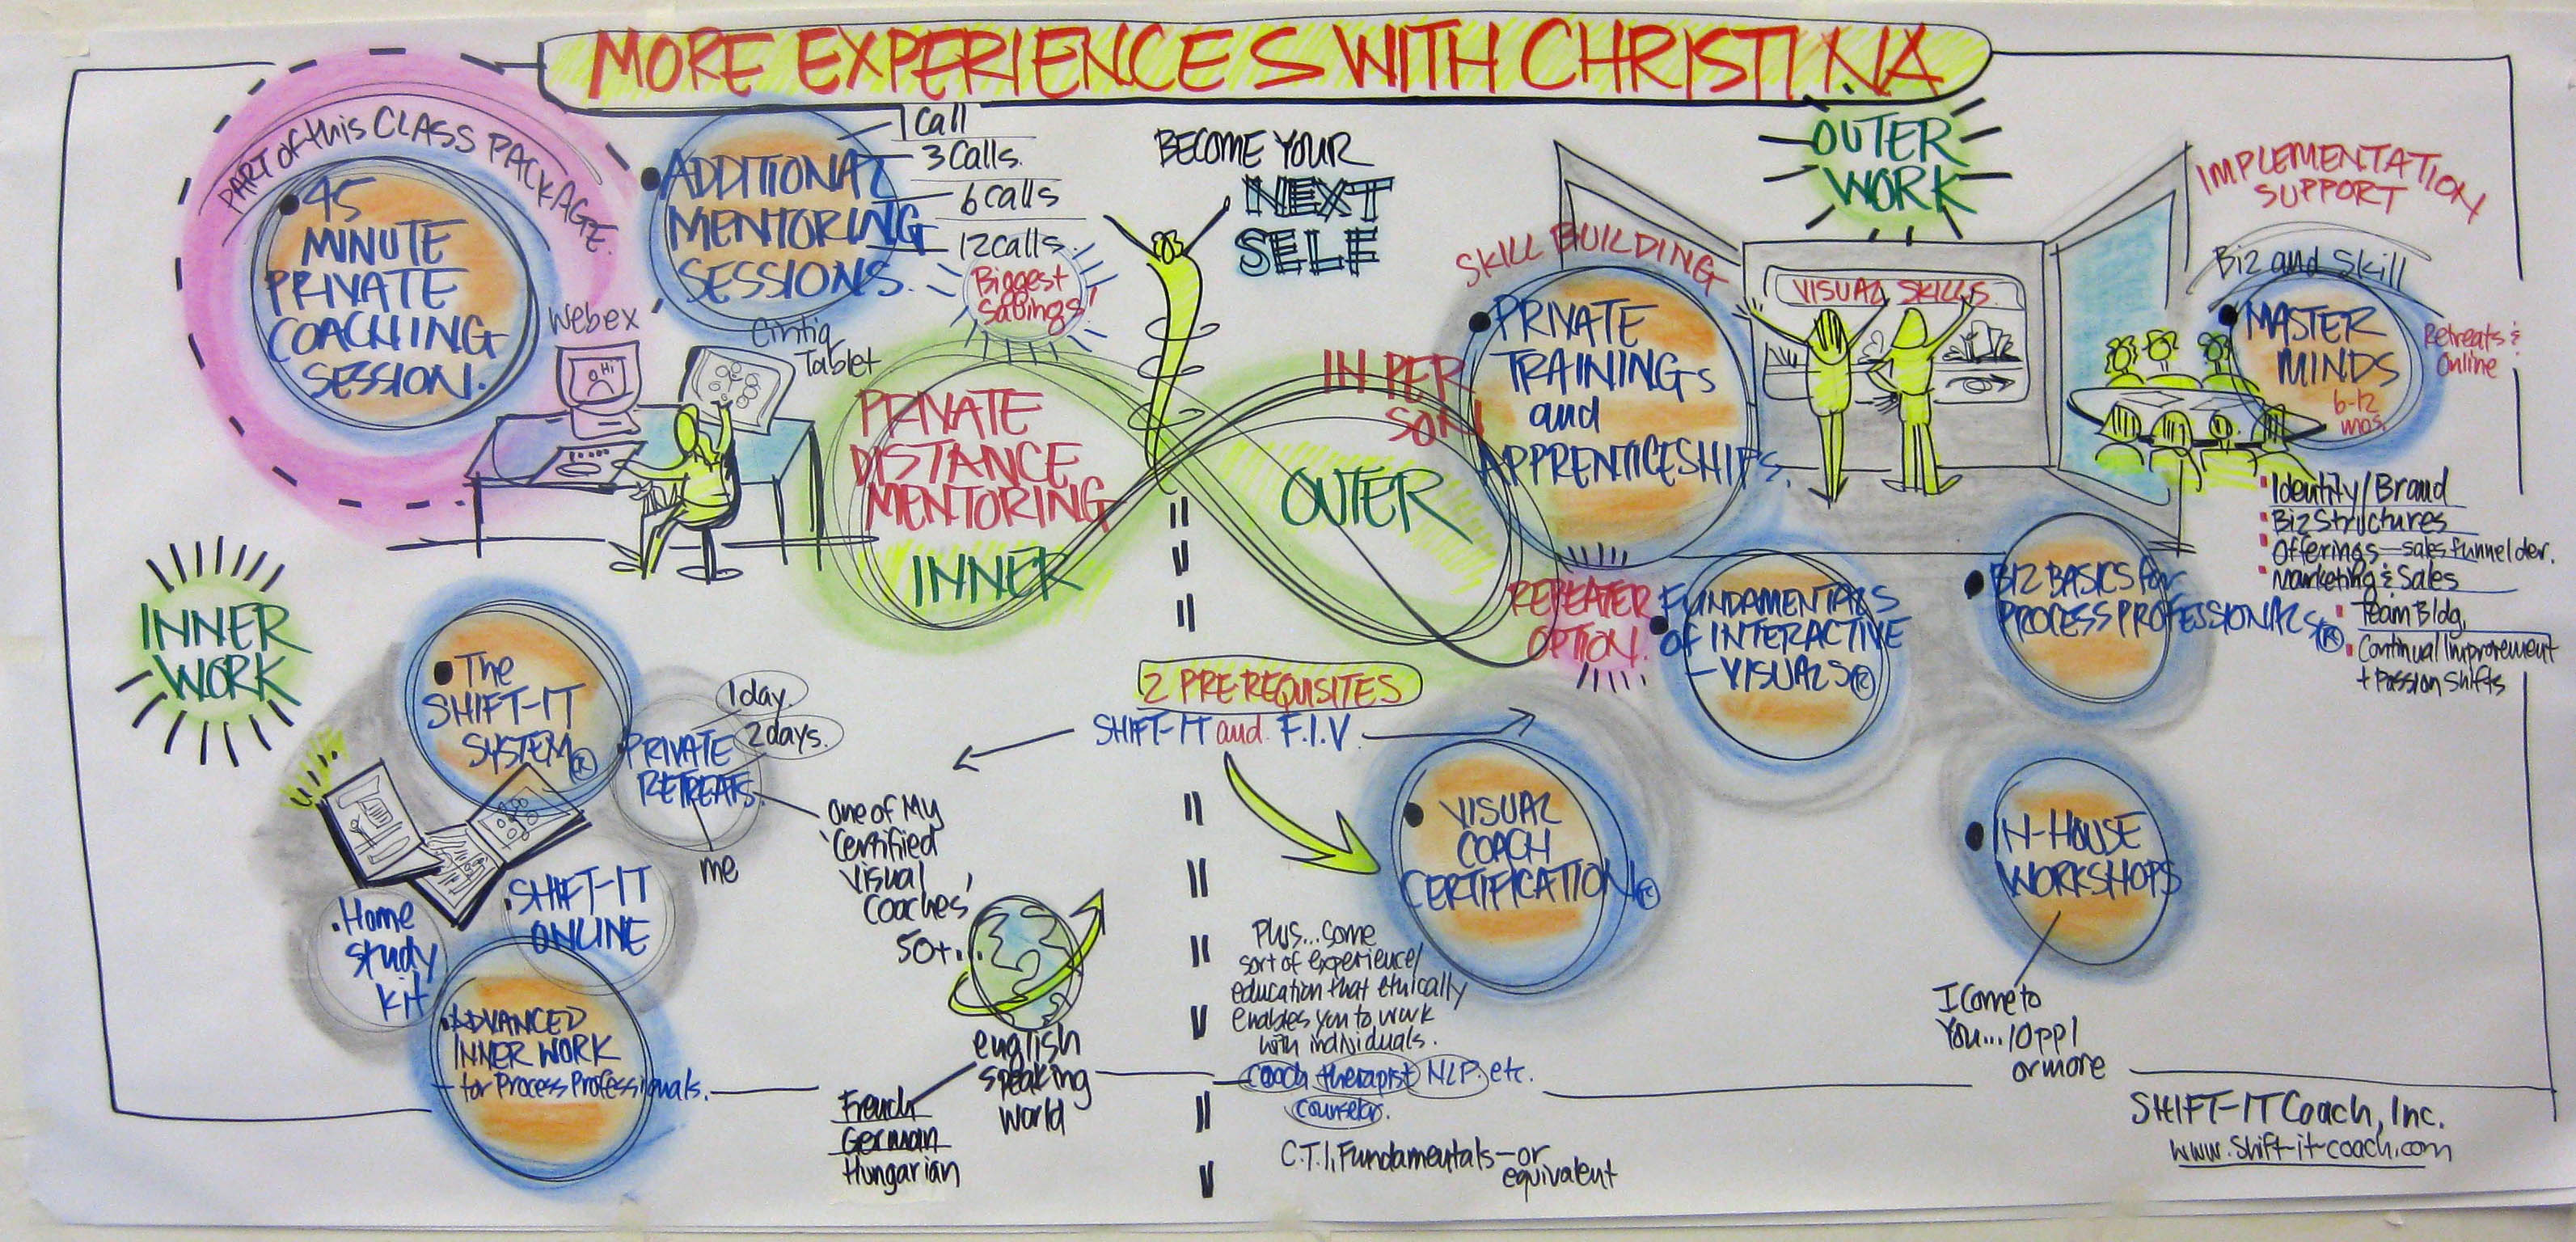 MORE EXPERIENCES WITH CHRISTINA
PART OF this CLASS PACKAGE.
• 45
MINUTE
PRIVATE
COACHING
SESSION.
• ADDITIONAL
MENTORING
SESSIONS.
1 Call
3 Calls.
6 calls
12 calls.
Biggest
Savings!
Webex
Hi
Cintiq
Tablet
BECOME YOUR
NEXT
SELF
PRIVATE
DISTANCE
MENTORING
INNER
IN PER
SON
OUTER
OUTER
WORK
SKILL BUILDING
• PRIVATE
TRAININGs
and
APPRENTICESHIPS.
VISUAL SKILLS
IMPLEMENTATION
SUPPORT
Biz and Skill
• MASTER
MINDS
6-12
mos.
Retreats &
Online
• Identity/Brand
• Biz Structures
• Offerings—sales funnel dev.
• Marketing & Sales
• Team Bldg.
• Continual Improvement
+ Passion Shifts
INNER
WORK
• The
SHIFT-IT
SYSTEM®
• PRIVATE
RETREATS.
1 day.
2 days.
me
one of My
'Certified
Visual
Coaches'
50+...
• Home
study
kit
• SHIFT-IT
ONLINE
• ADVANCED
INNER WORK
- for Process Professionals.
english
speaking
world
French
German
Hungarian
2 PREREQUISITES
SHIFT-IT and F.I.V.
REPEATER
OPTION.
• FUNDAMENTALS
OF INTERACTIVE
-VISUALS®
• BIZ BASICS for
PROCESS PROFESSIONALS®
• VISUAL
COACH
CERTIFICATION®
Plus...some
sort of experience/
education that ethically
enables you to work
with individuals.
Coach therapist NLP. etc.
Counselor.
C.T.I. Fundamentals—or
equivalent
• IN-HOUSE
WORKSHOPS
I Come to
You.../10 ppl
or more
SHIFT-IT Coach, Inc.
www.shift-it-coach.com